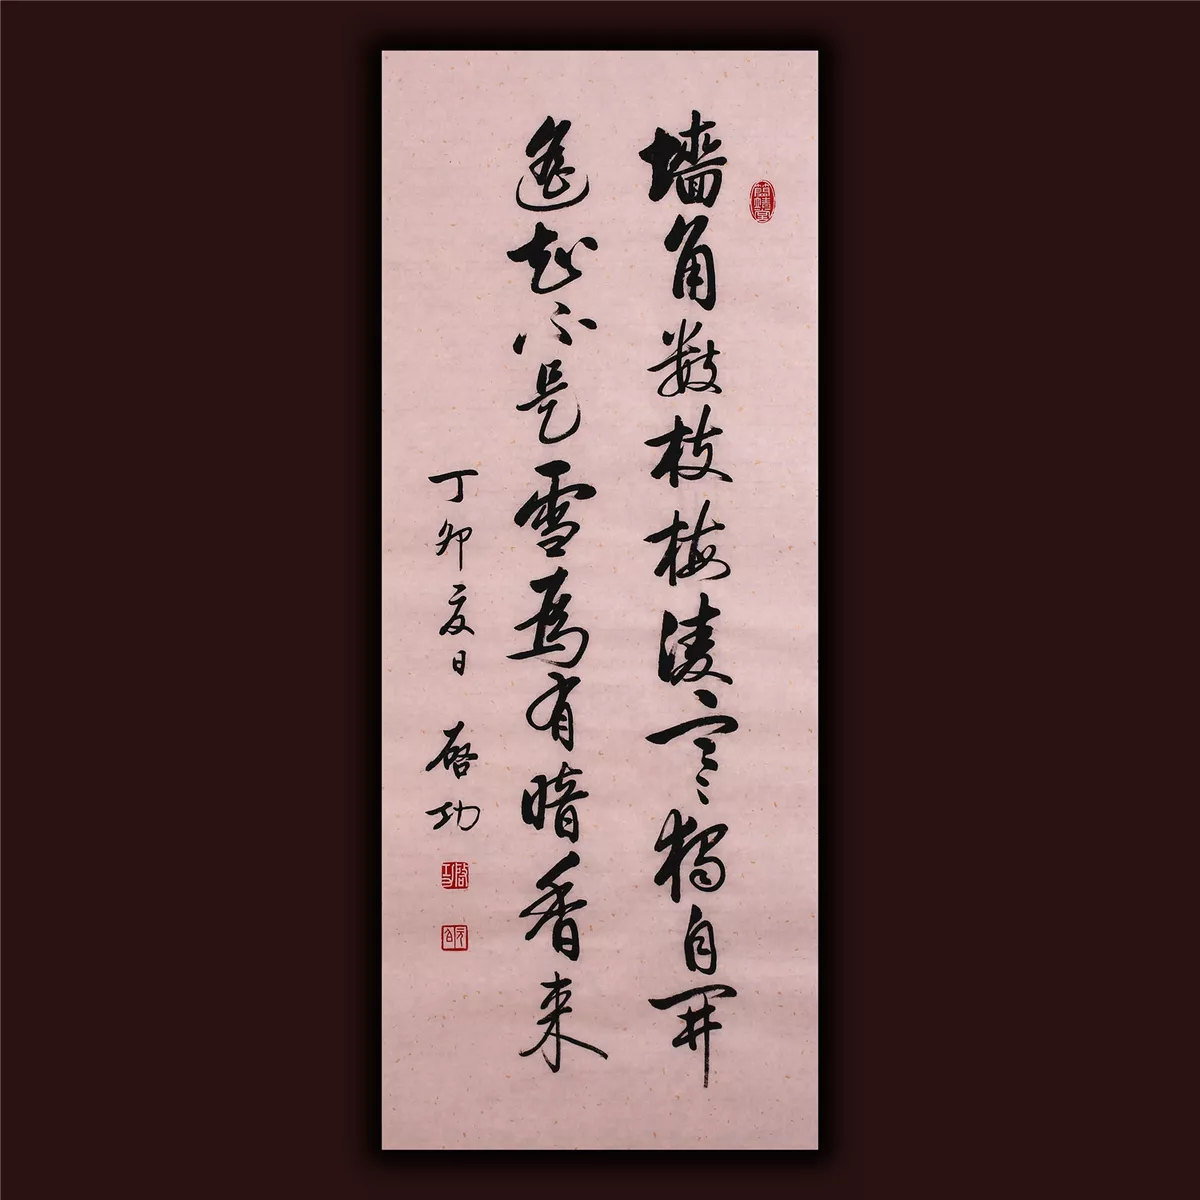 墙角数枝梅凌寒独自开
遥知不是雪为有暗香来
丁卯夏日
启功
启功
元白